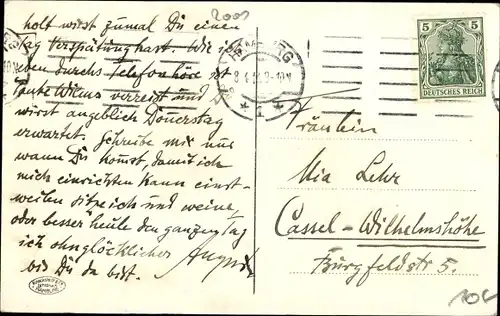 2001
holt wirst zumal Du einen
Tag Verspätung hast. Wie ich
eben durchs Telefon höre ist
Tante Wilms verreist und
wirst angeblich Donerstag
erwartet. Schreibe mir nur
wann Du komst, damit ich
mich einrichten kann einst-
weilen sitze ich und weine
oder besser heule den ganzen Tag
ich unglücklicher August
bis Du da bist.
HAMBURG
5 5
DEUTSCHES REICH
Fräulein
Mia Lehr
Cassel-Wilhelmshöhe
Burgfeldstr 5.
10€